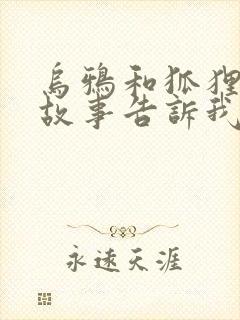 烏鴉和狐狸
故事告訴我
永遠天涯